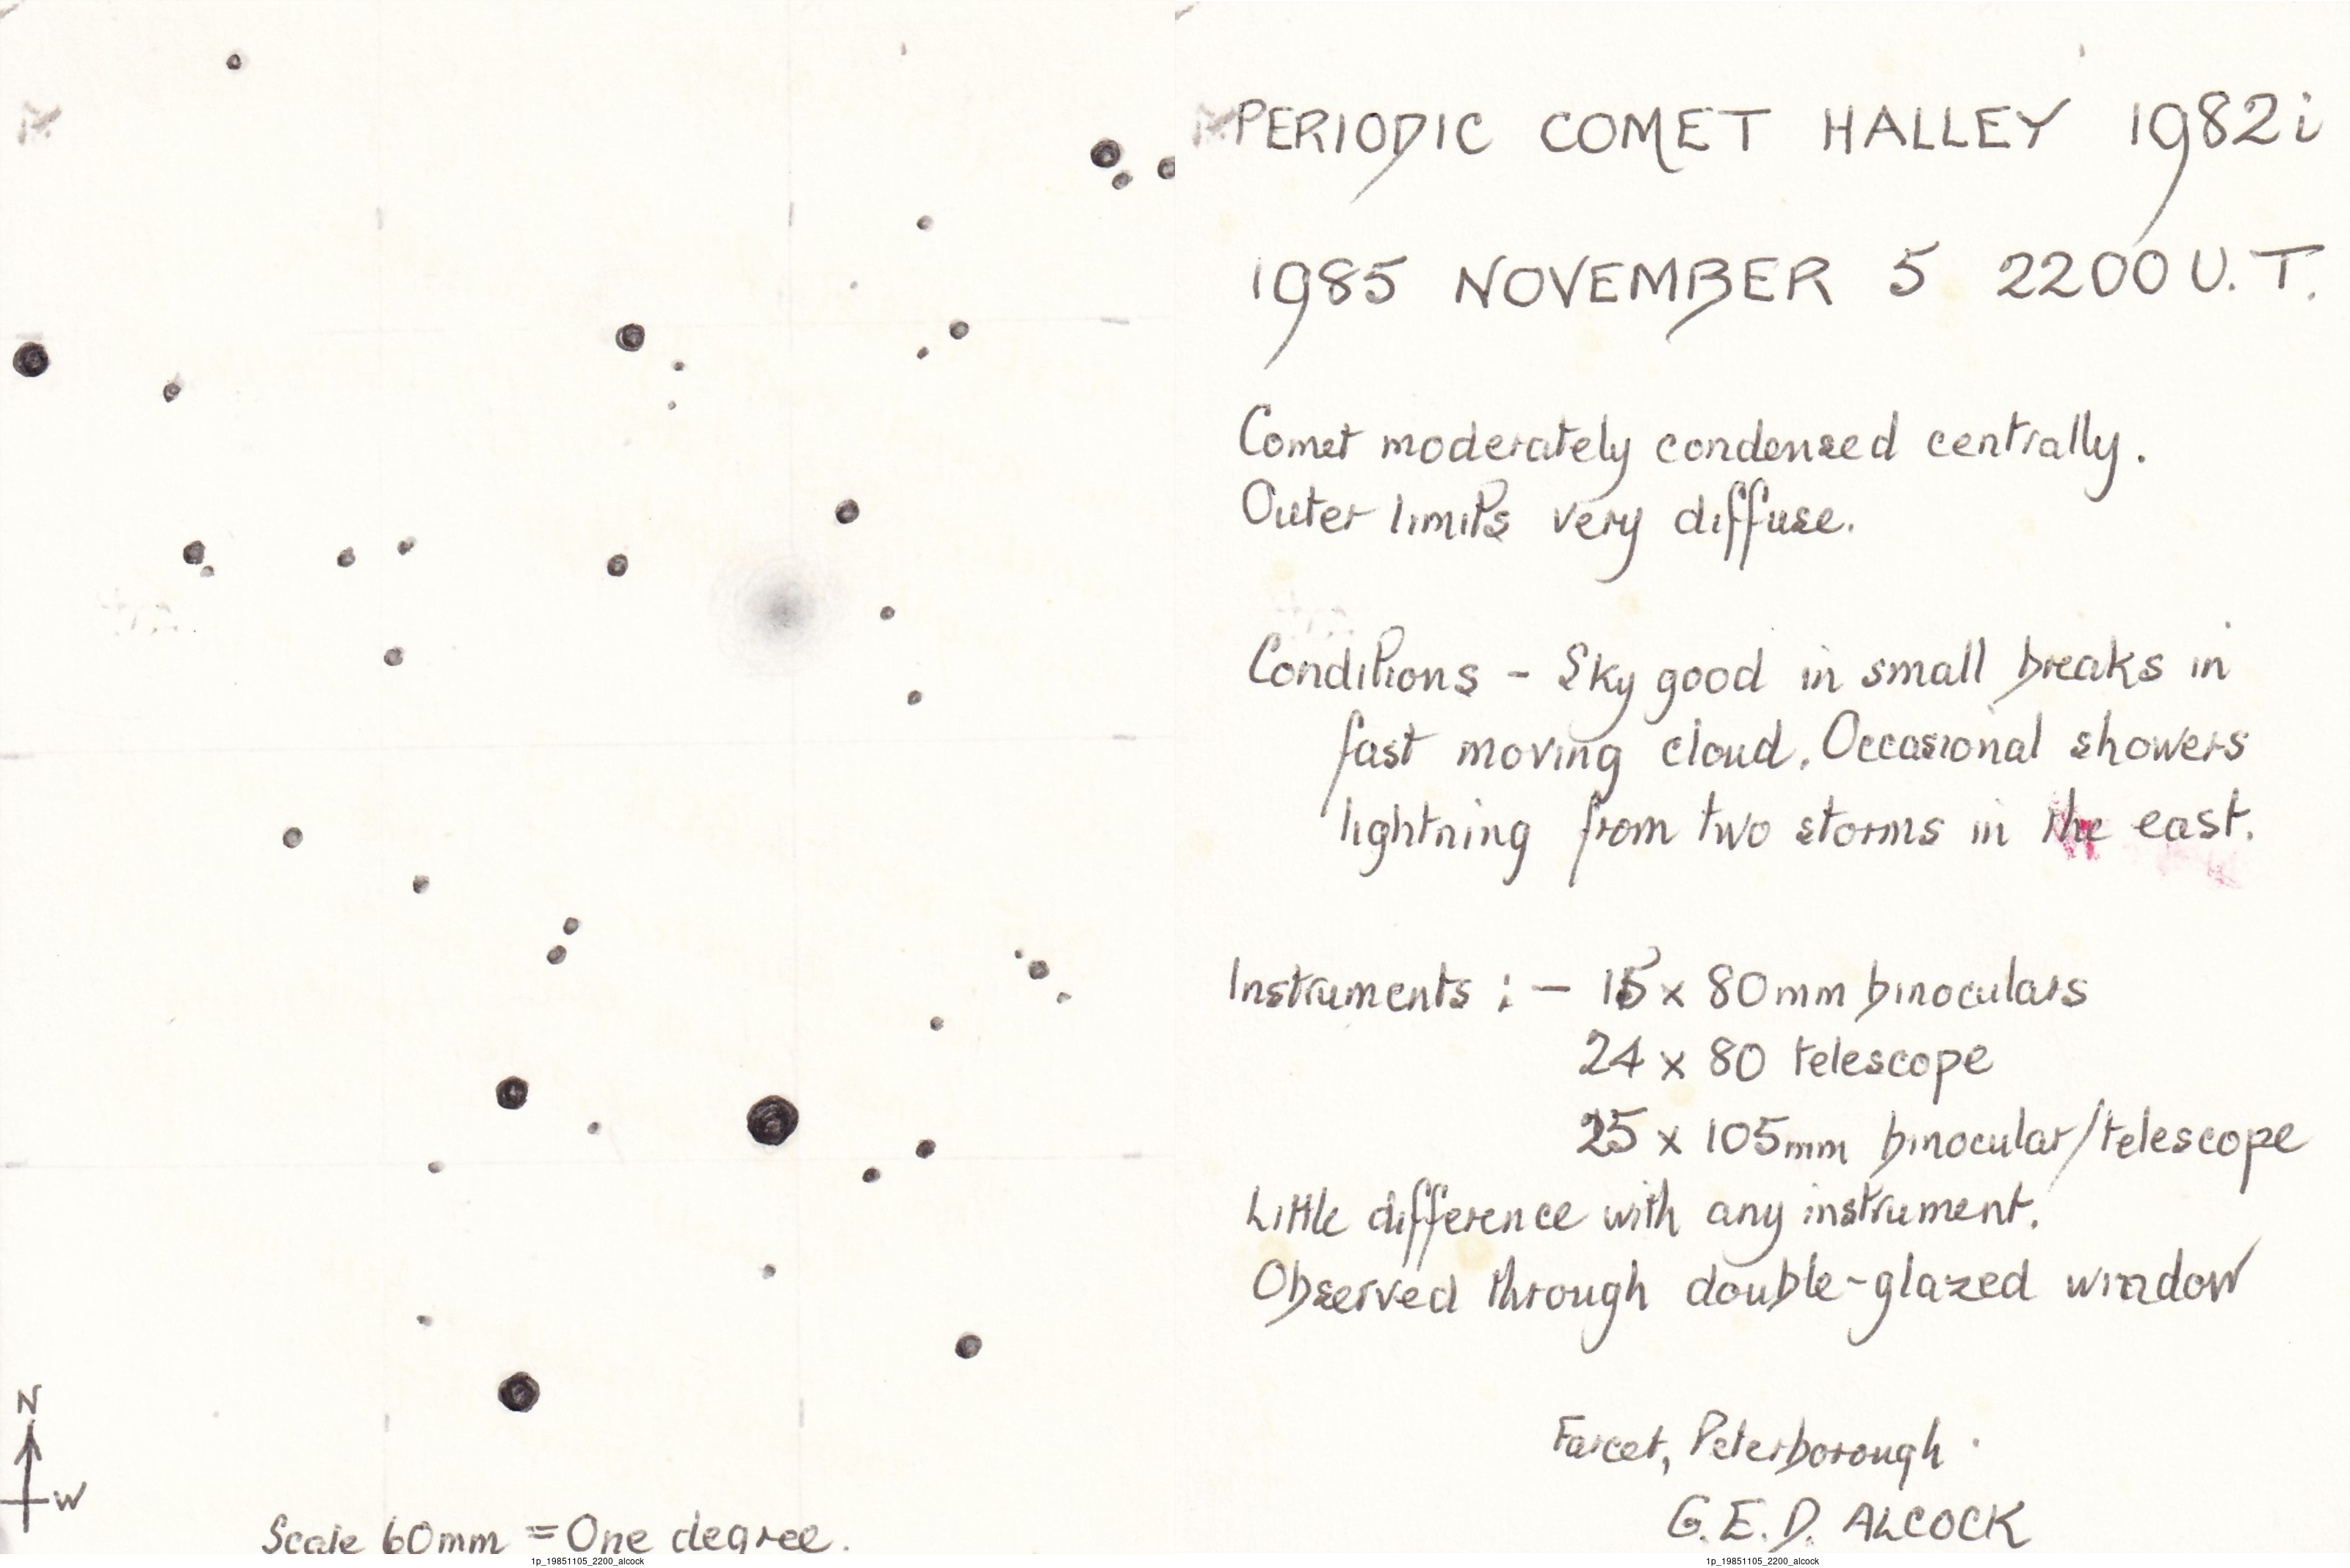 N
W
Scale 60mm = One degree.
1p_19851105_2200_alcock
PERIODIC COMET HALLEY 1982i
1985 NOVEMBER 5 2200 U.T.
Comet moderately condensed centrally.
Outer limits very diffuse.
Conditions - Sky good in small breaks in
fast moving cloud. Occasional showers
lightning from two storms in the east.
Instruments :- 15 x 80mm binoculars
24 x 80 telescope
25 x 105mm binocular/telescope
Little difference with any instrument.
Observed through double-glazed window
Farcet, Peterborough
G.E.D. ALCOCK
1p_19851105_2200_alcock